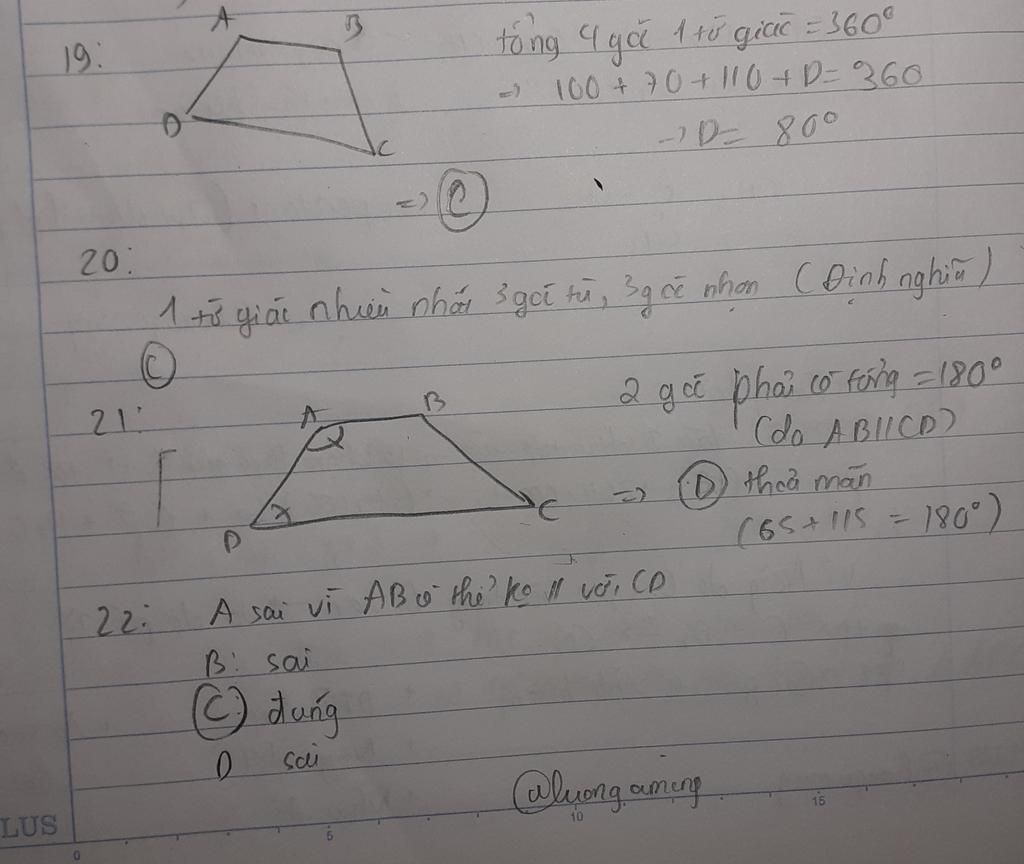 19:
A
B
D
C
tổng 4 góc 1 tứ giác = 360°
=> 100 + 70 + 110 + D = 360
-> D = 80°
=> C
20:
1 tứ giác nhiều nhất 3 góc tù, 3 góc nhọn (Định nghĩa)
C
21:
A
B
2
x
D
C
2 góc phải có tổng = 180°
(do AB // CD)
=> D thoả mãn
(65 + 115 = 180°)
22: A sai vì AB có thể ko // với CD
B: sai
C: đúng
D sai
@luongaming
LUS
0 5 10 15